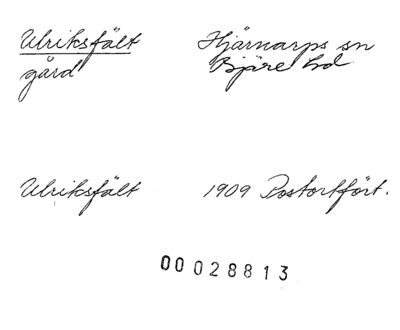 Ulriksfält Hjärnarps sn
gård Bjäre hd
Ulriksfält 1909 Postortfört.
00028813